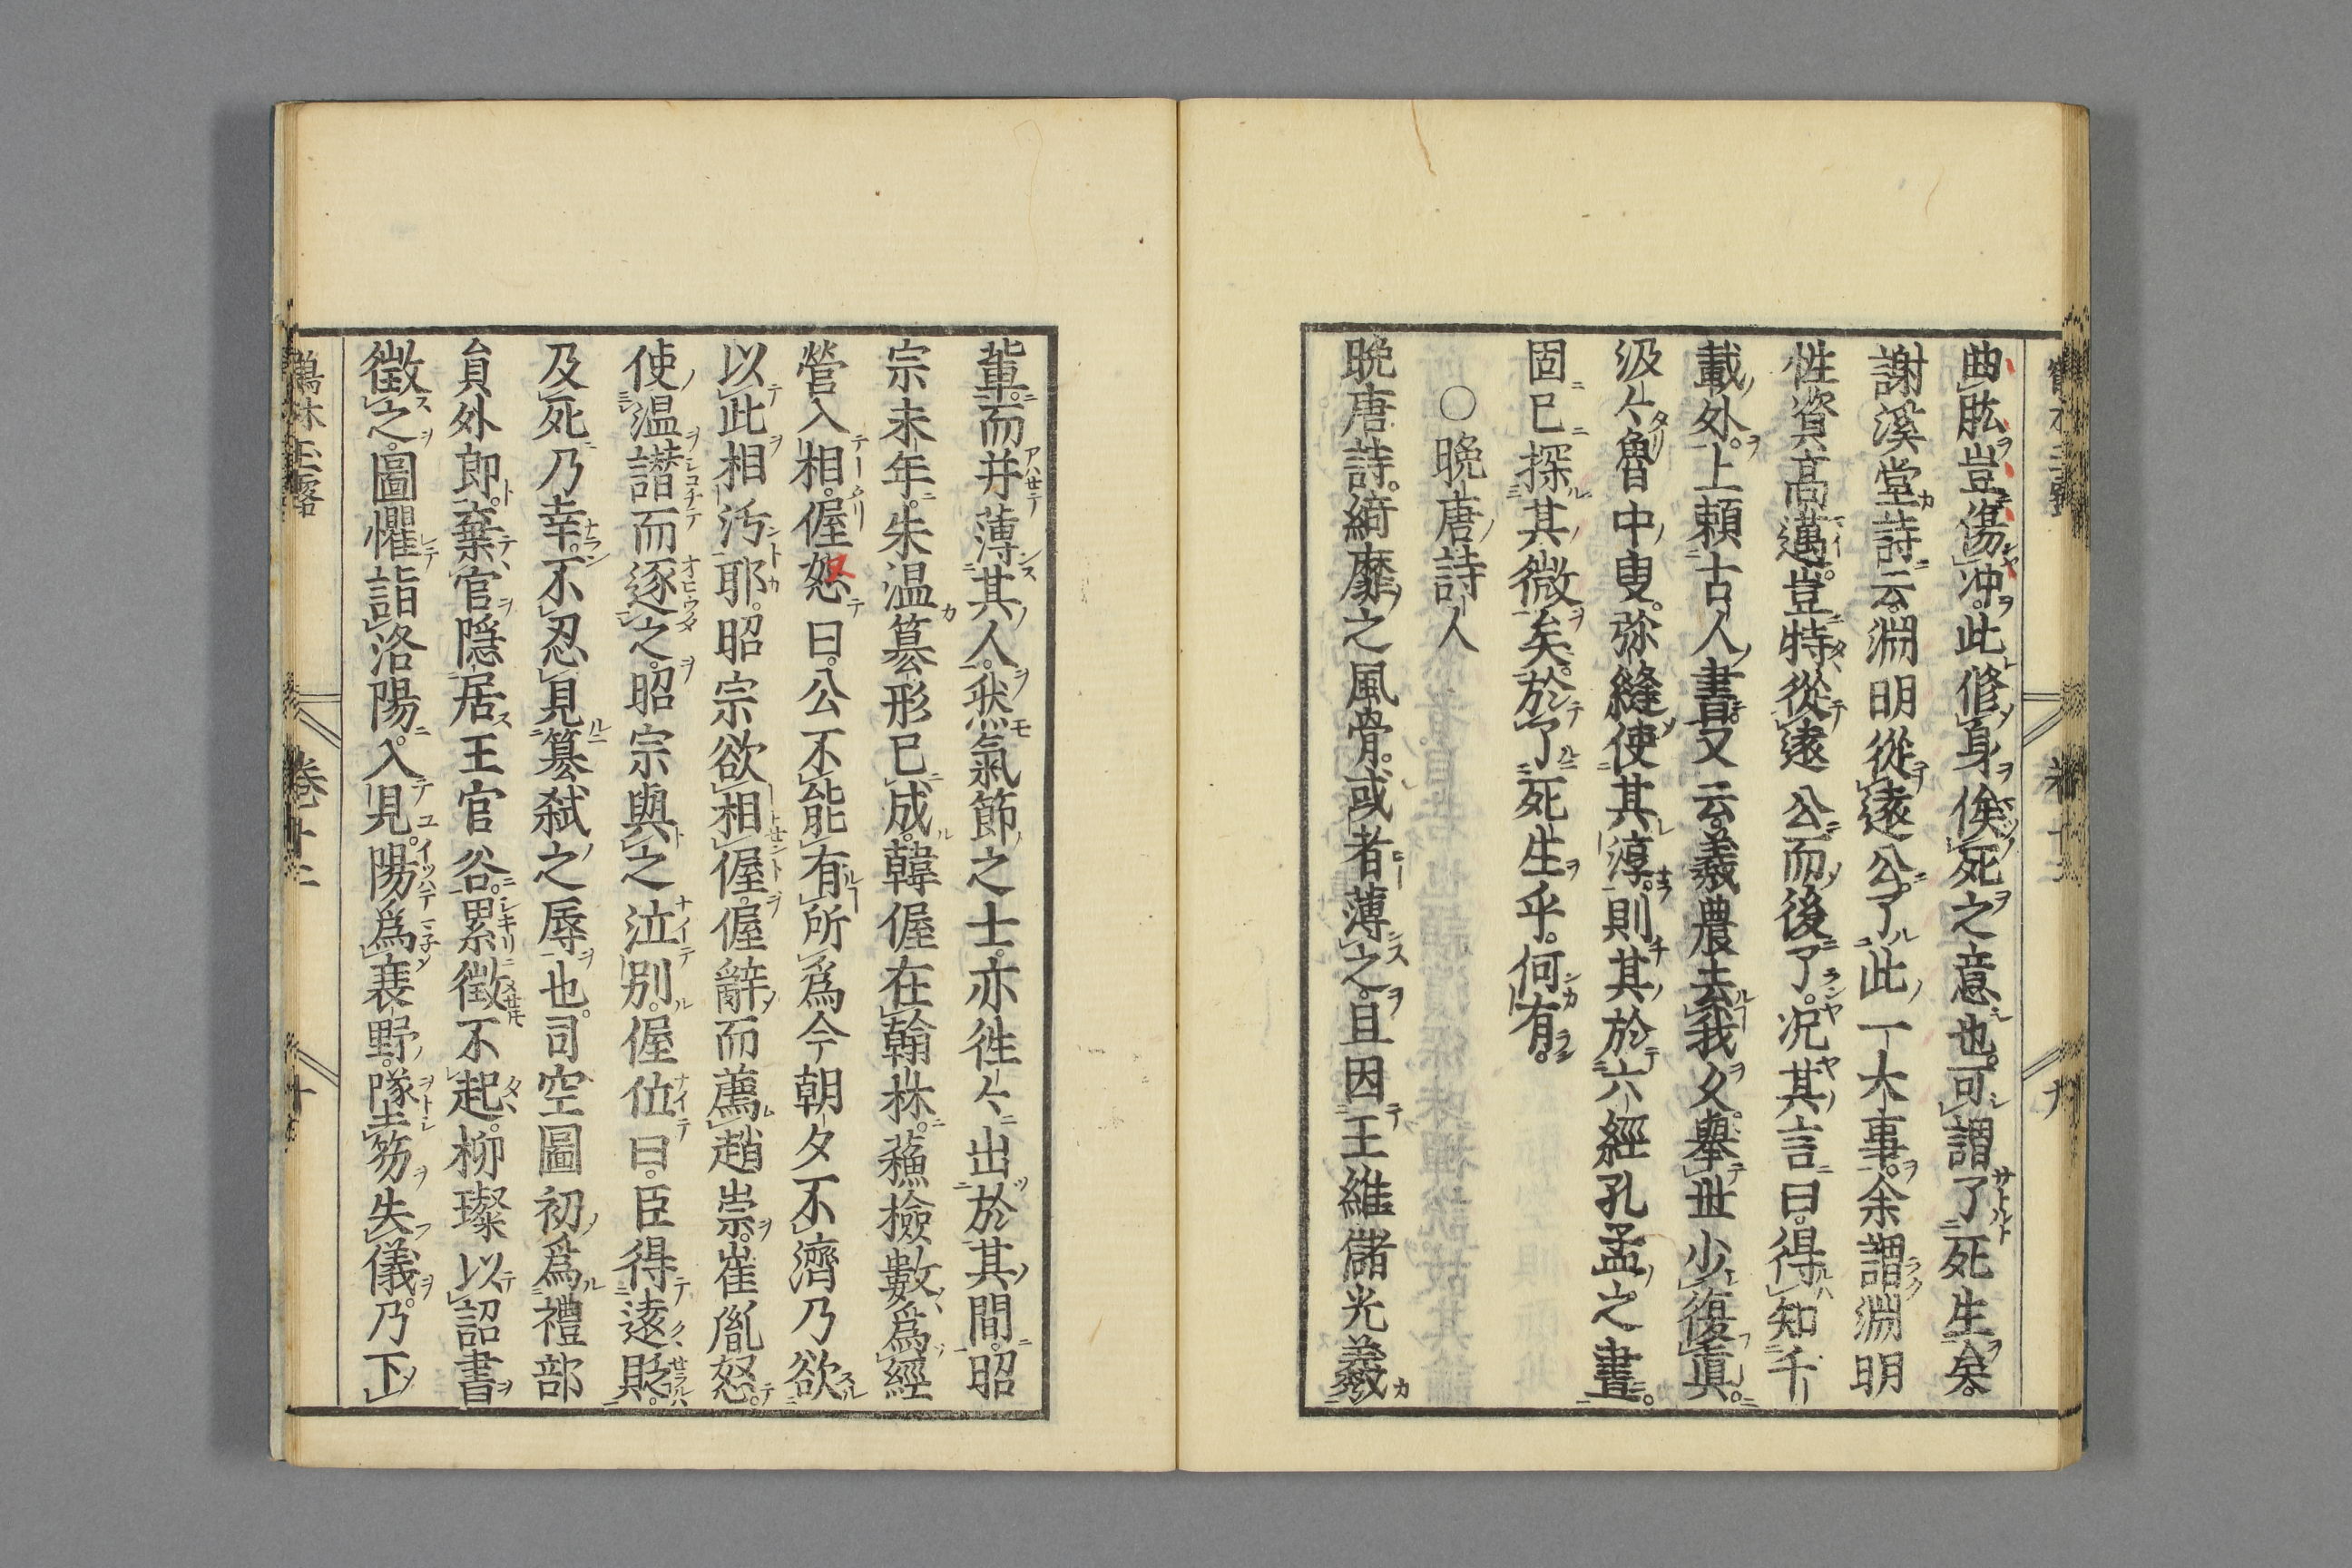 曲肱豈傷冲此修身俟死之意也可謂了死生矣
謝溪堂詩云淵明從遠公了此一大事余謂淵明
性資高邁豈特從遠公而後了況其言曰得知千
載外上賴古人書又云羲農去我久舉世少復眞
汲々魯中叟弥縫使其淳則其於六經孔孟之書
固已探其微矣於了死生乎何有
○晩唐詩人
晩唐詩綺靡之風骨或者薄之且因王維儲光羲
輩而并薄其人然氣節之士亦徃々出於其間昭
宗末年朱温簒形已成韓偓在翰林蘓撿數爲經
營入相偓怒曰公不能有所爲今朝夕不濟乃欲
以此相汚耶昭宗欲相偓偓辭而薦趙崇崔胤怒
使温譖而逐之昭宗與之泣別偓位曰臣得遠貶
及死乃幸不忍見簒弑之辱也司空圖初爲禮部
員外郎棄官隠居王官谷累徴不起柳璨以詔書
徴之圖懼詣洛陽入見陽爲衰野墜笏失儀乃下
鶴林玉露　卷十二　十